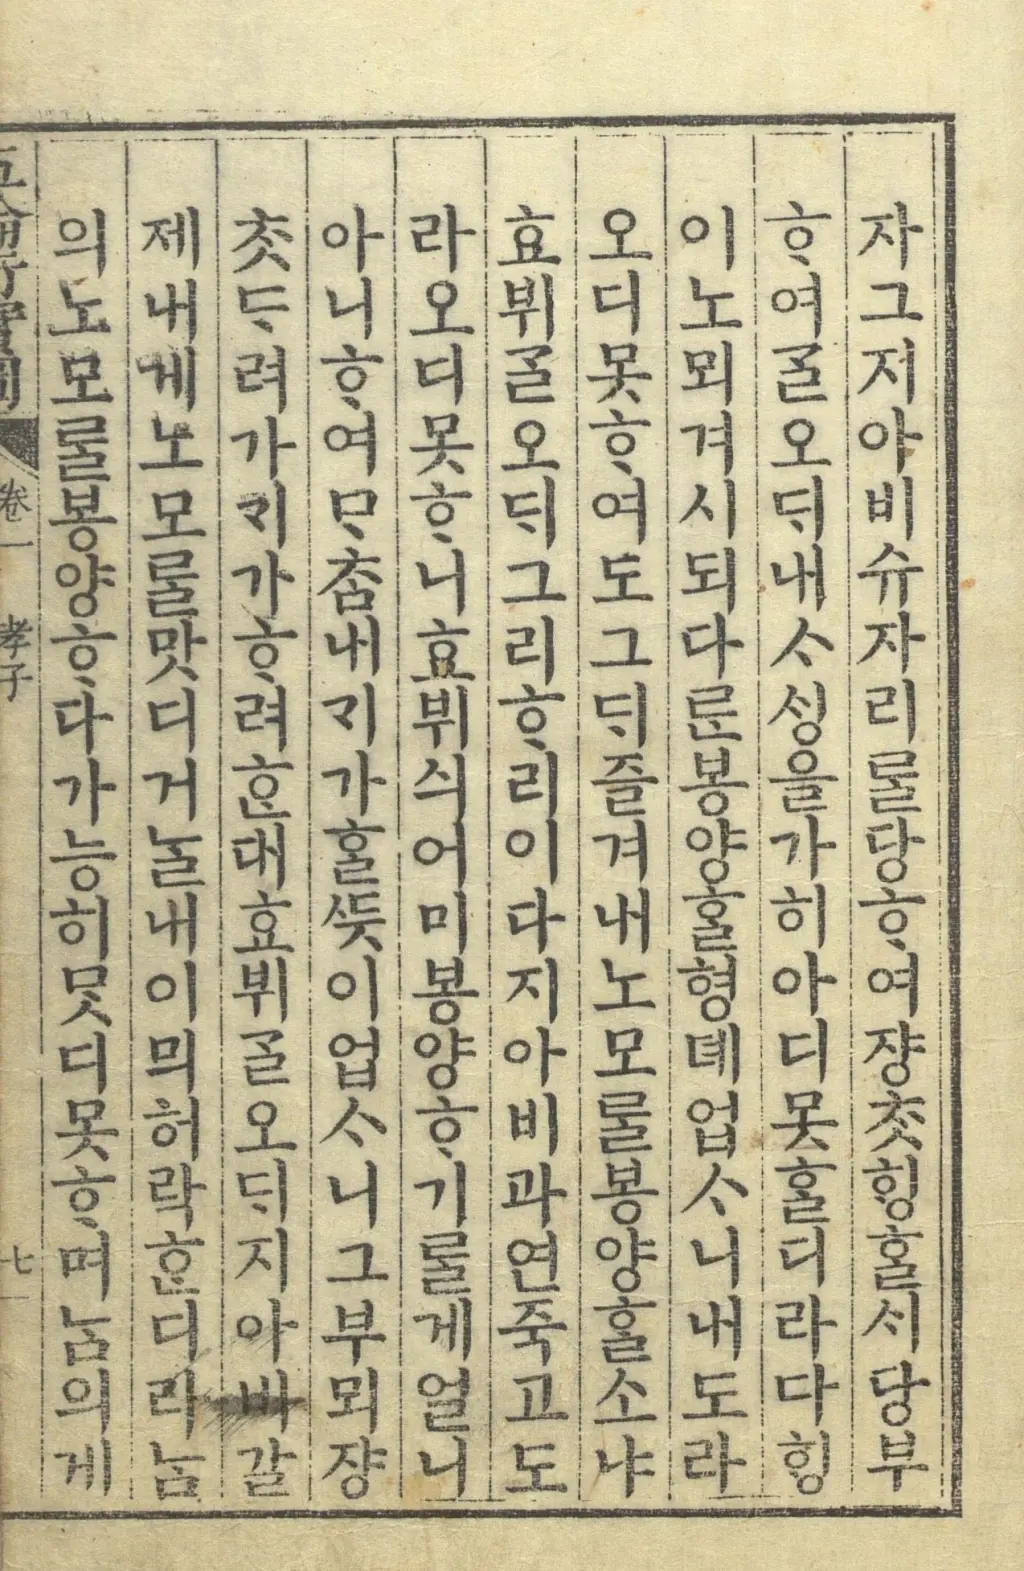 자그저아비슈자리ᄅᆞᆯ당ᄒᆞ여쟝ᄎᆞᆺᄒᆡᆼᄒᆞᆯᄉᆡ당부
ᄒᆞ여ᄀᆞᆯ오ᄃᆡ내ᄉᆞᄉᆡᆼ을가히아디못ᄒᆞᆯ디라다ᄒᆡᆼ
이노뫼겨시되다ᄅᆞᆫ봉양ᄒᆞᆯ형뎨업ᄉᆞ니내도라
오디못ᄒᆞ여도그ᄃᆡ즐겨내노모ᄅᆞᆯ봉양ᄒᆞᆯ소냐
효뷔ᄀᆞᆯ오ᄃᆡ그리ᄒᆞ리이다지아비과연죽고도
라오디못ᄒᆞ니효뷔싀어미봉양ᄒᆞ기ᄅᆞᆯ게얼니
아니ᄒᆞ여ᄆᆞᄎᆞᆷ내ᄀᆡ가ᄒᆞᆯᄯᅳᆺ이업ᄉᆞ니그부뫼쟝
ᄎᆞᆺᄃᆞ려가ᄀᆡ가ᄒᆞ려ᄒᆞᆫ대효뷔ᄀᆞᆯ오ᄃᆡ지아비갈
제내게노모ᄅᆞᆯ맛디거ᄂᆞᆯ내이믜허락ᄒᆞᆫ디라ᄂᆞᆷ
의노모ᄅᆞᆯ봉양ᄒᆞ다가능히ᄆᆞᆺ디못ᄒᆞ며ᄂᆞᆷ의게
五倫行實圖 卷一 孝子 七